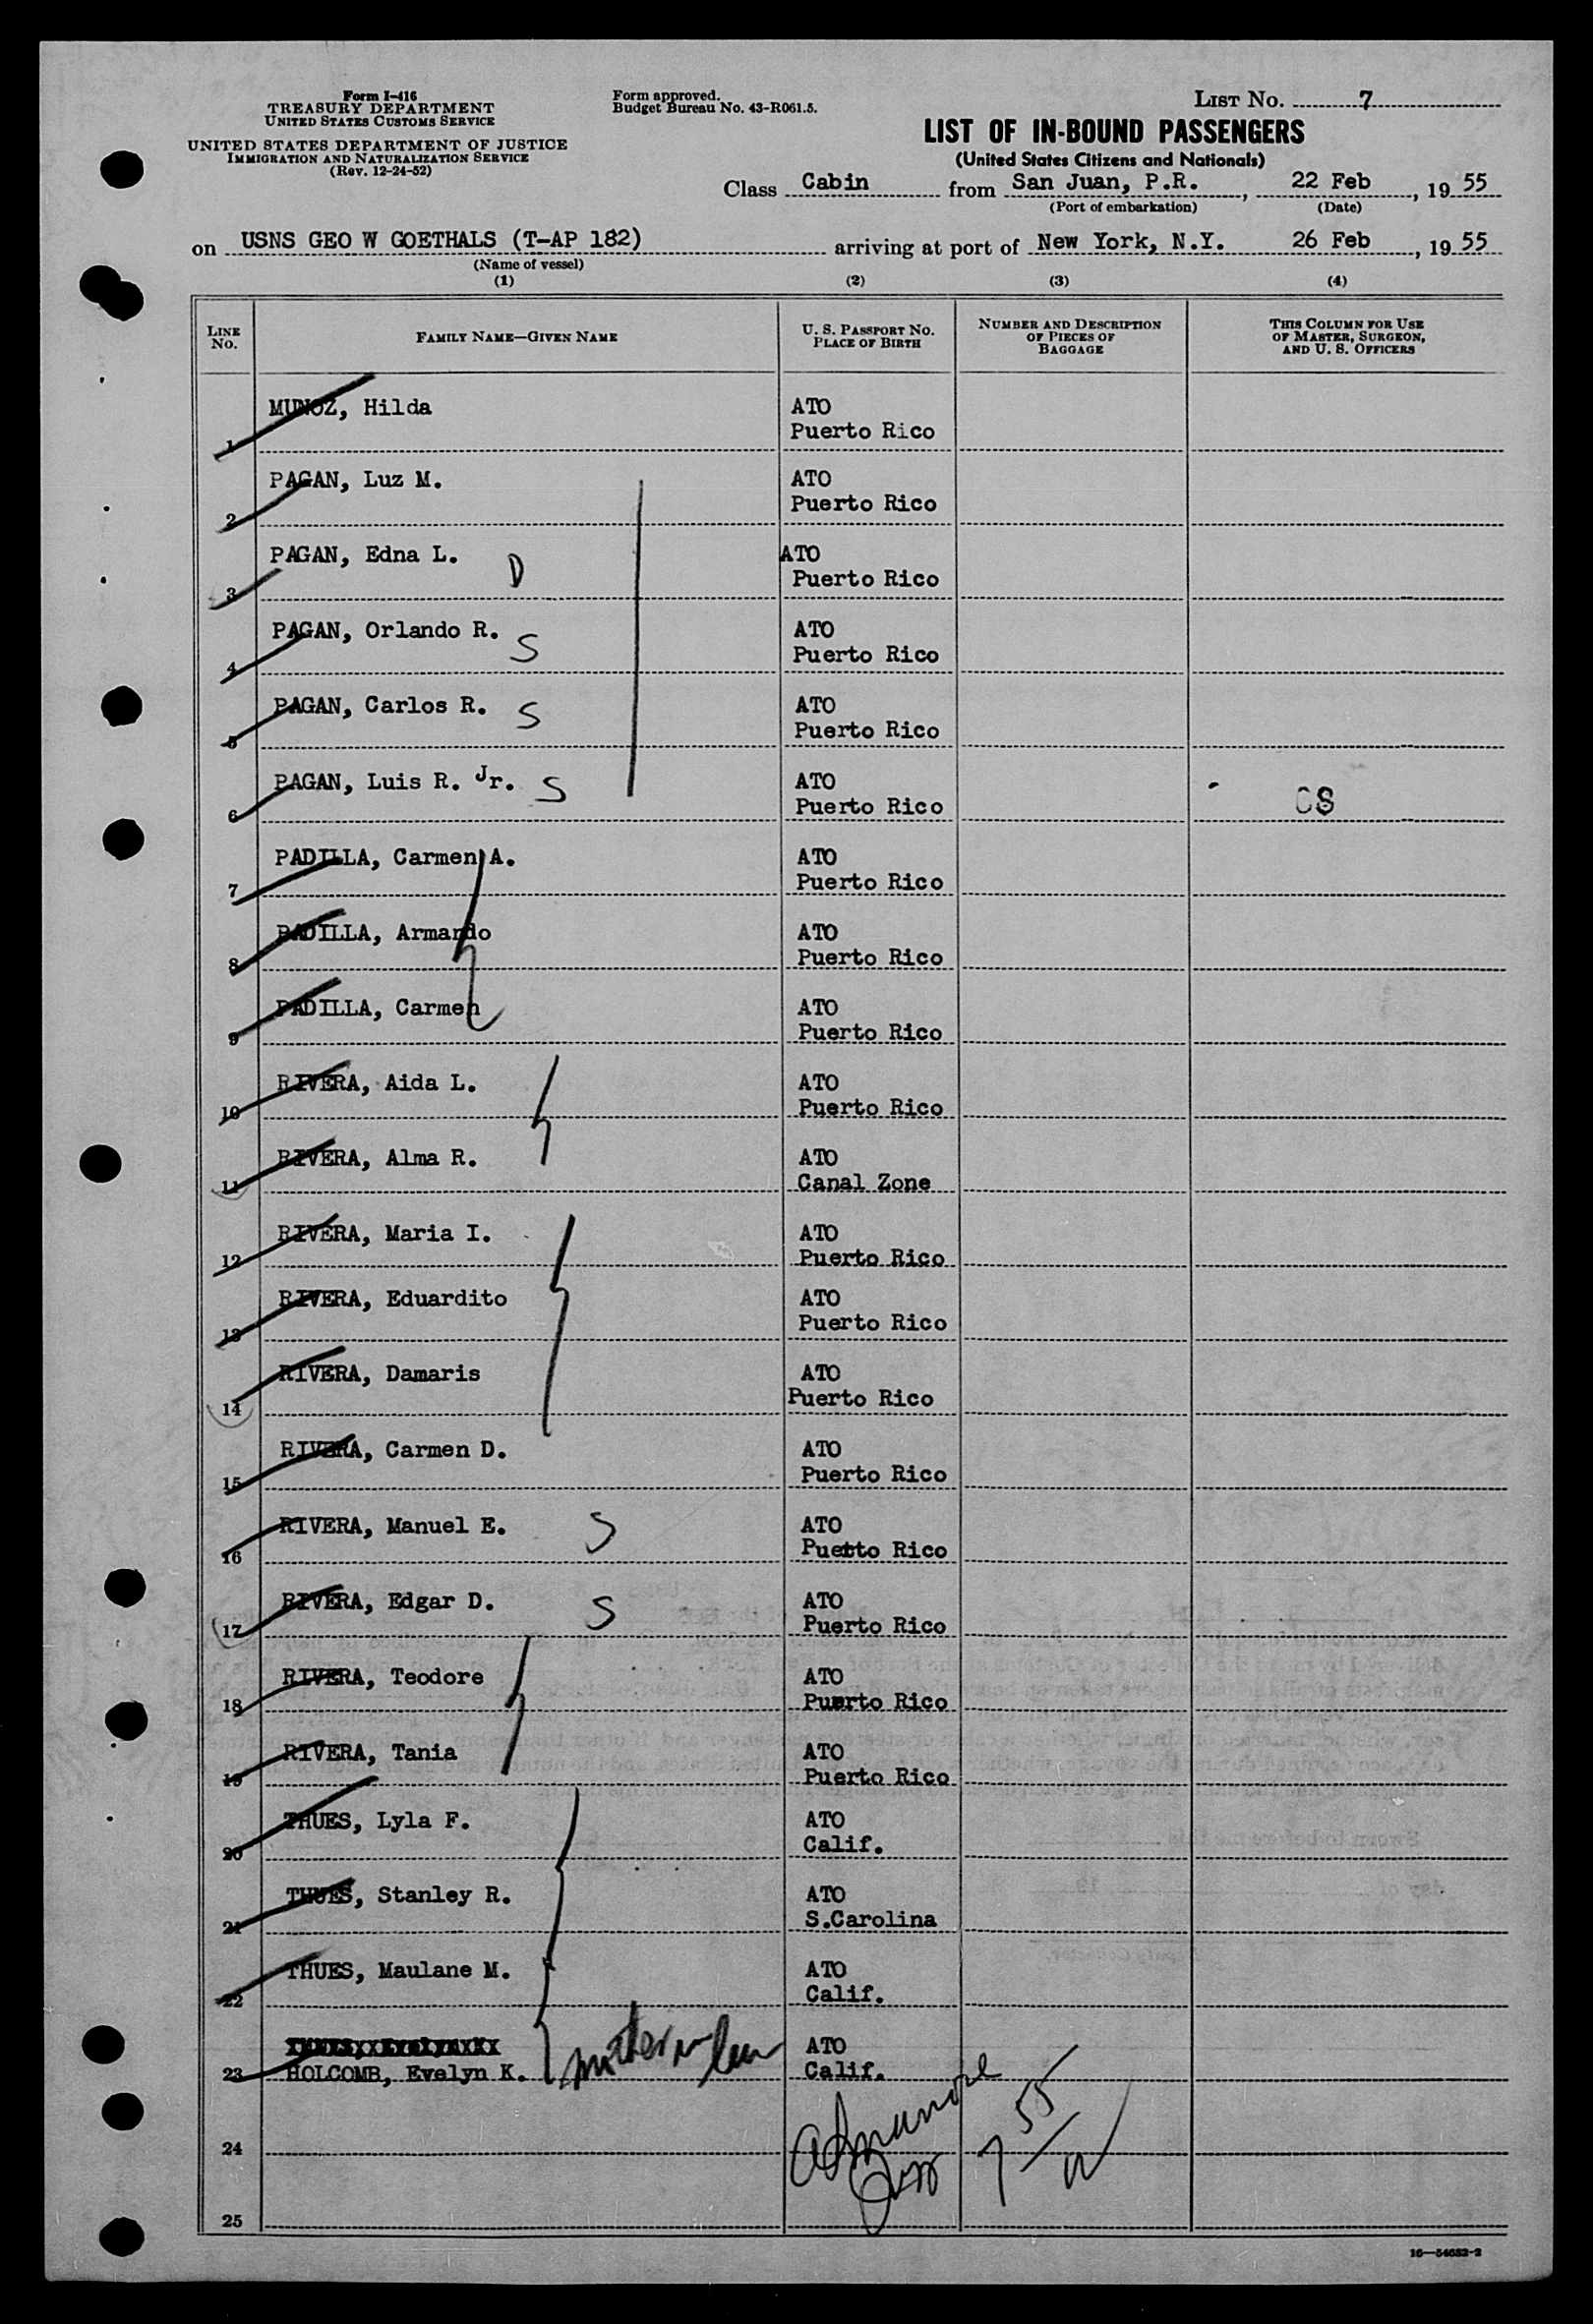 Form I-416
TREASURY DEPARTMENT
UNITED STATES CUSTOMS SERVICE
UNITED STATES DEPARTMENT OF JUSTICE
IMMIGRATION AND NATURALIZATION SERVICE
(Rev. 12-24-52)
Form approved.
Budget Bureau No. 43-R061.5.
LIST No. 7
LIST OF IN-BOUND PASSENGERS
(United States Citizens and Nationals)
Class Cabin from San Juan, P.R., 22 Feb, 19 55
(Port of embarkation) (Date)
on USNS GEO W GOETHALS (T-AP 182) arriving at port of New York, N.Y. 26 Feb, 19 55
(Name of vessel)
(1) (2) (3) (4)
LINE No. FAMILY NAME—GIVEN NAME U. S. PASSPORT No. PLACE OF BIRTH NUMBER AND DESCRIPTION OF PIECES OF BAGGAGE THIS COLUMN FOR USE OF MASTER, SURGEON, AND U. S. OFFICERS
MUNOZ, Hilda ATO
1 Puerto Rico
PAGAN, Luz M. ATO
2 Puerto Rico
PAGAN, Edna L. D ATO
3 Puerto Rico
PAGAN, Orlando R. S ATO
4 Puerto Rico
PAGAN, Carlos R. S ATO
5 Puerto Rico
PAGAN, Luis R. Jr. S ATO
6 Puerto Rico CS
PADILLA, Carmen A. ATO
7 Puerto Rico
PADILLA, Armando ATO
8 Puerto Rico
PADILLA, Carmen ATO
9 Puerto Rico
RIVERA, Aida L. ATO
10 Puerto Rico
RIVERA, Alma R. ATO
11 Canal Zone
RIVERA, Maria I. ATO
12 Puerto Rico
RIVERA, Eduardito ATO
13 Puerto Rico
RIVERA, Damaris ATO
14 Puerto Rico
RIVERA, Carmen D. ATO
15 Puerto Rico
RIVERA, Manuel E. S ATO
16 Puetto Rico
RIVERA, Edgar D. S ATO
17 Puerto Rico
RIVERA, Teodore ATO
18 Puerto Rico
RIVERA, Tania ATO
19 Puerto Rico
THUES, Lyla F. ATO
20 Calif.
THUES, Stanley R. ATO
21 S.Carolina
THUES, Maulane M. ATO
22 Calif.
ATO
23 HOLCOMB, Evelyn K. mother in law Calif.
24
25
7 55
16—54682-2